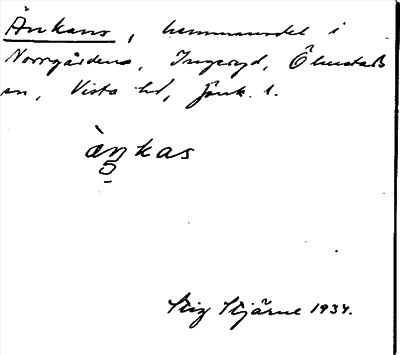 Änkans, hemmansdel i
Norrgårdens, Ingeryd, Ölmstads
sn, Vista hd, Jönk. l.
ànkas
Stig Stjärne 1934.